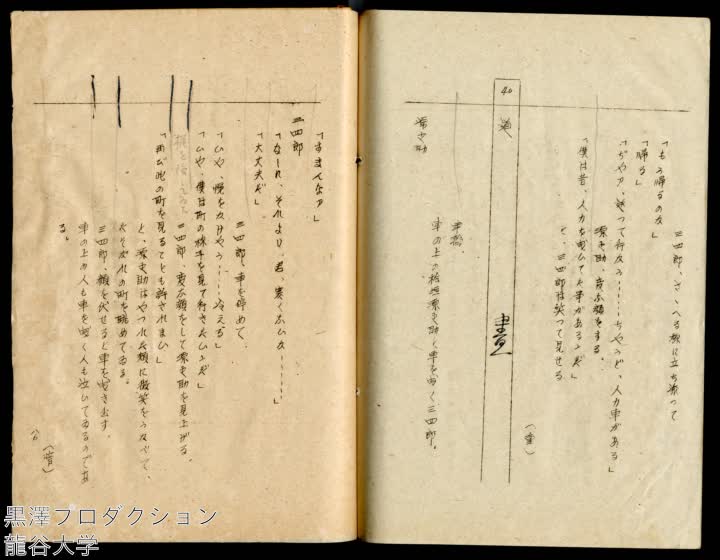 三四郎、さゝへる様に立ち添って
「もう帰るのか」
「帰る」
「ぢやア、送って行かう……ちやうど、人力車がある」
源之助、変な顔をする。
「僕は昔、人力を曳いてた事があるんだ」
と、三四郎は笑って見せる
(量)
40
道
車戀。
車の上の桧垣源之助と車を曳く三四郎。
源之助
「すまんなア」
三四郎
「なーに、それより、君、寒くないか……」
「大丈夫だ」
三四郎、車を停めて
「いや、幌をかけやう……冷える」
「いや、僕は町の様子を見て行きたいんだ」
三四郎、変な顔をして源之助を見上げる。
「再び此の町を見るとも許されまい」
と、源之助はやつれた頬に微笑をうかべて、
たそがれの町を眺めてゐる。
三四郎、顔を伏せると車を曳き出す。
車の上の人も車を曳く人も泣いてゐるのであ
る。
黒澤プロダクション
龍谷大学